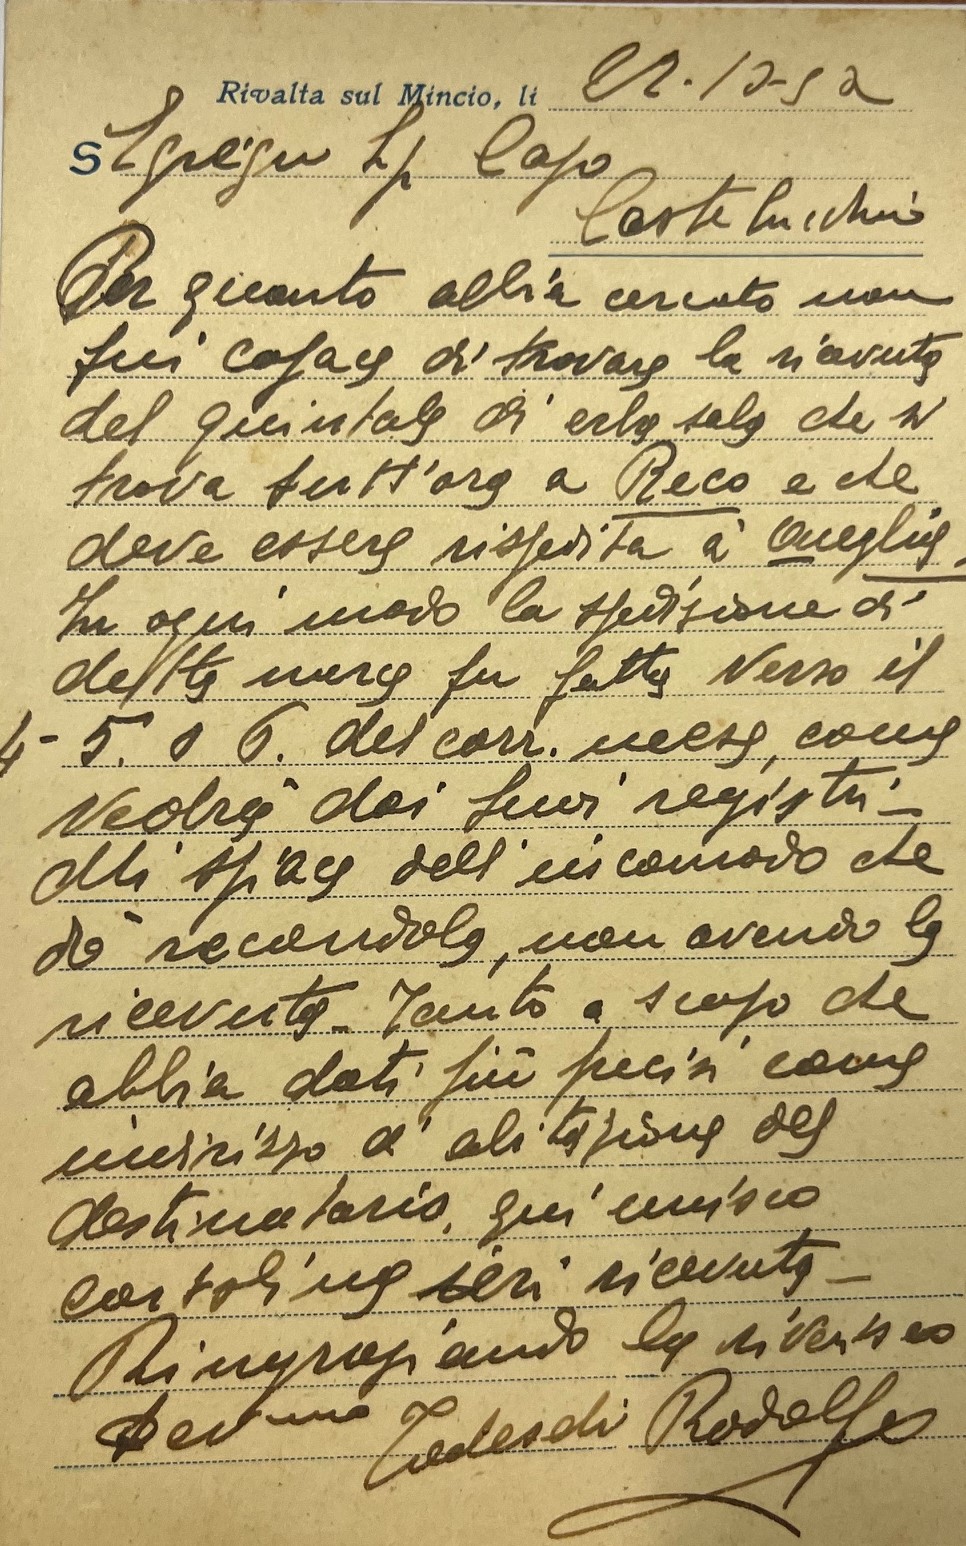 Rivalta sul Mincio, li 22-12-32
S Egregio Sig. Capo
Castellucchio
Per quanto abbia cercato non
fui capace di trovare la ricevuta
del quintale di erba sala che si
trova tutt'ora a Reco e che
deve essere rispedita a Oneglia.
In ogni modo la spedizione di
detta merce fu fatta verso il
4- 5. o 6. del corr. mese, come
vedrà dai suoi registri_
Mi spiace dell'incomodo che
dò recandole, non avendo la
ricevuta_ Tanto a scopo che
abbia dati più precisi come
indirizzo d'abitazione del
destinatario, qui unisco
cartolina ieri ricevuta_
Ringraziando la riverisco
Devmo Tedeschi Rodolfo